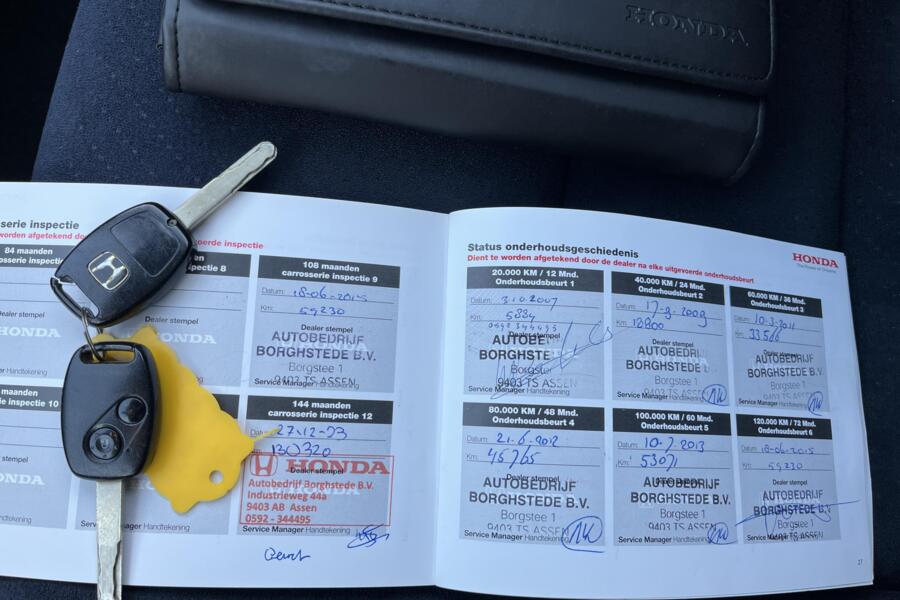 HONDA
serie inspectie
worden afgetekend do
oerde inspectie
84 maanden
carrosserie inspe
pectie 8
108 maanden
carrosserie inspectie 9
Datum: 18-06-2015
Km: 59230
Dealer stempel
AUTOBEDRIJF
BORGHSTEDE B.V.
Borgstee 1
9403 TS ASSEN
Service Manager Handtekening
Dealer stempel
HONDA
Handtekening
maanden
inspectie 10
144 maanden
carrosserie inspectie 12
Datum: 27-12-23
Km: 130320
HONDA
Dealer stempel
Autobedrijf Borghstede B.V.
Industrieweg 44a
9403 AB Assen
0592 - 344495
Service Manager Handtekening
Status onderhoudsgeschiedenis
Dient te worden afgetekend door de dealer na elke uitgevoerde onderhoudsbeurt
HONDA
The Power of Dreams
20.000 KM / 12 Mnd.
Onderhoudsbeurt 1
Datum: 3.10.2007
Km: 5884
0592 344495
Dealer stempel
AUTOBE
BORGHSTE
Borgstee
9403 TS ASSEN
Service Manager Handtekening
40.000 KM / 24 Mnd.
Onderhoudsbeurt 2
Datum: 17-3-2009
Km: 18800
Dealer stempel
AUTOBEDRIJF
BORGHSTEDE
Borgstee 1
9403 TS ASSEN
Service Manager Handtekening
60.000 KM / 36 Mnd.
Onderhoudsbeurt 3
Datum: 10-3-2011
Km: 33566
Dealer stempel
AUTOBEDRIJF
BORGHSTEDE B.V.
Borgstee 1
9403 TS ASSEN
Service Manager Handtekening
80.000 KM / 48 Mnd.
Onderhoudsbeurt 4
Datum: 21-6-2012
Km: 45765
Dealer stempel
AUTOBEDRIJF
BORGHSTEDE B.V.
Borgstee 1
9403 TS ASSEN
Service Manager Handtekening
100.000 KM / 60 Mnd.
Onderhoudsbeurt 5
Datum: 10-7-2013
Km: 53071
Dealer stempel
AUTOBEDRIJF
BORGHSTEDE B.V.
Borgstee 1
9403 TS ASSEN
Service Manager Handtekening
120.000 KM / 72 Mnd.
Onderhoudsbeurt 6
Datum: 18-06-2015
Km: 59230
Dealer stempel
AUTOBEDRIJF
BORGHSTEDE B.V.
Borgstee 1
9403 TS ASSEN
Service Manager Handtekening
27